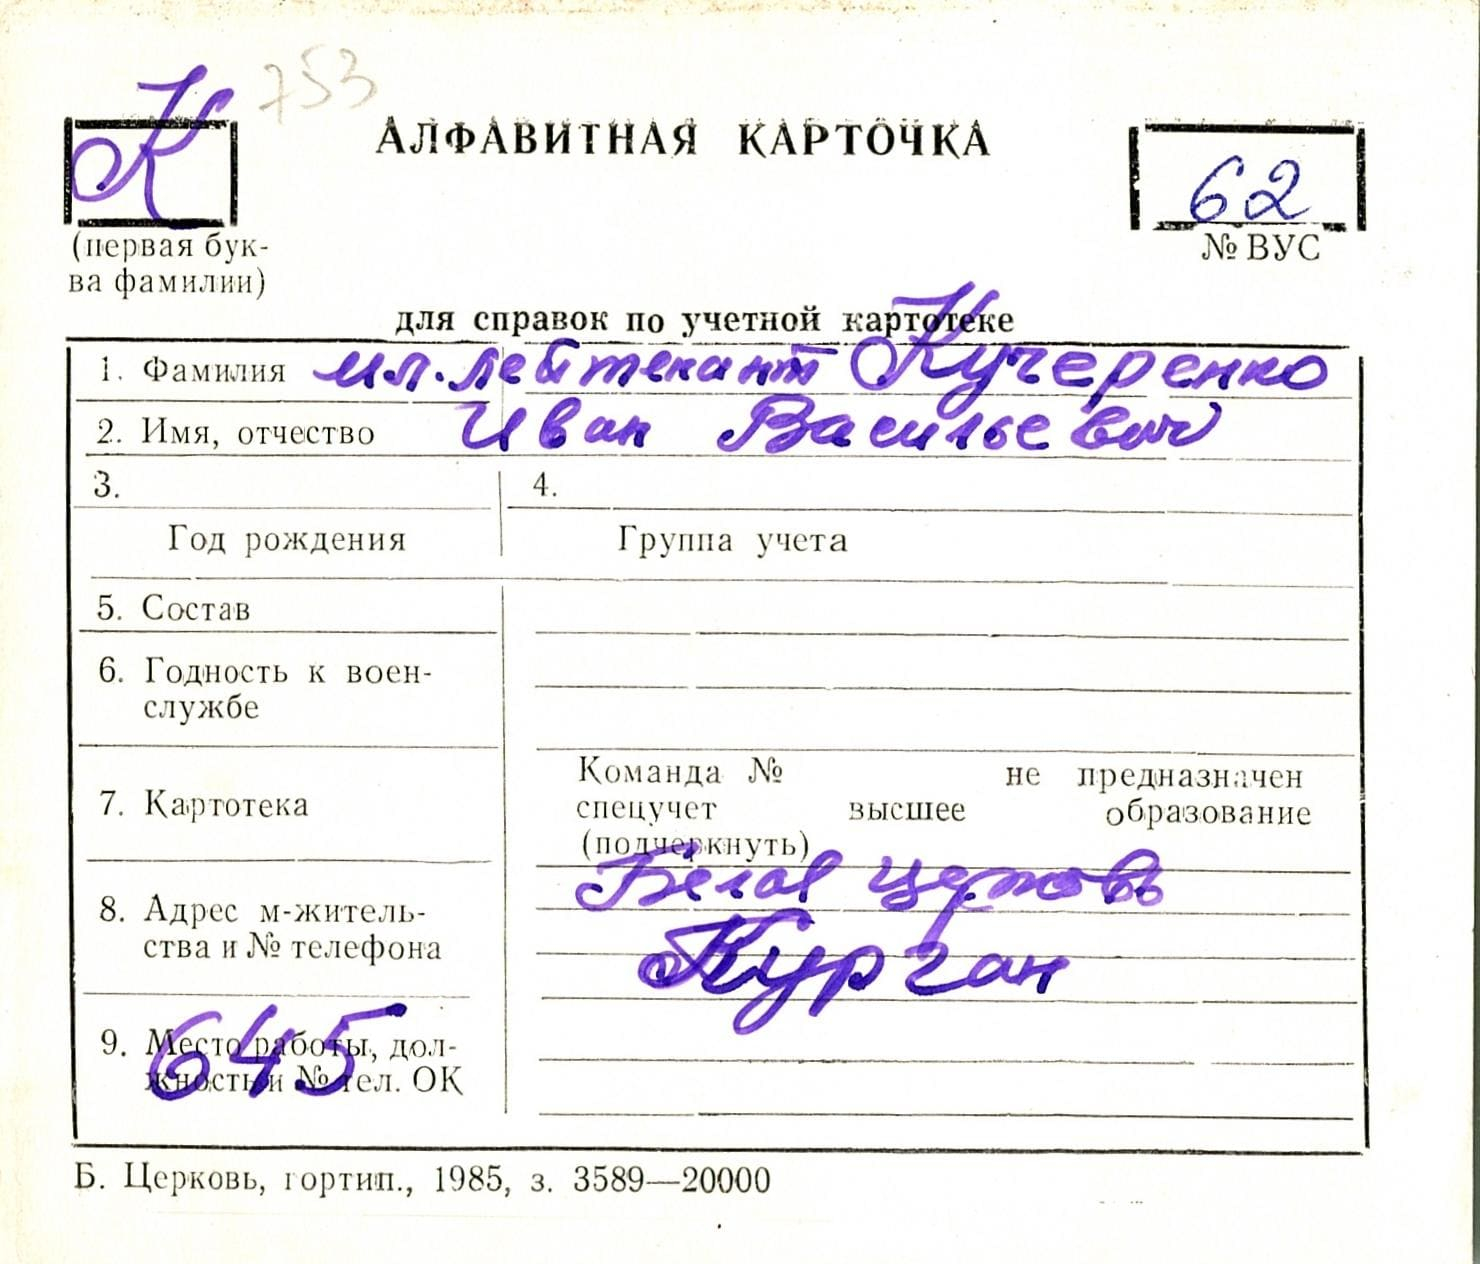 К 753
АЛФАВИТНАЯ КАРТОЧКА
62
(первая бук-
ва фамилии)
№ ВУС
для справок по учетной картотеке
1. Фамилия мл. лейтенант Кучеренко
2. Имя, отчество Иван Васильевич
3. 4.
Год рождения Группа учета
5. Состав
6. Годность к воен-
службе
7. Картотека
Команда № не предназначен
спецучет высшее образование
(подчеркнуть)
8. Адрес м-житель-
ства и № телефона
Белая Церковь
Курган
9. Место работы, дол-
жность и № тел. ОК
645
Б. Церковь, гортип., 1985, з. 3589—20000